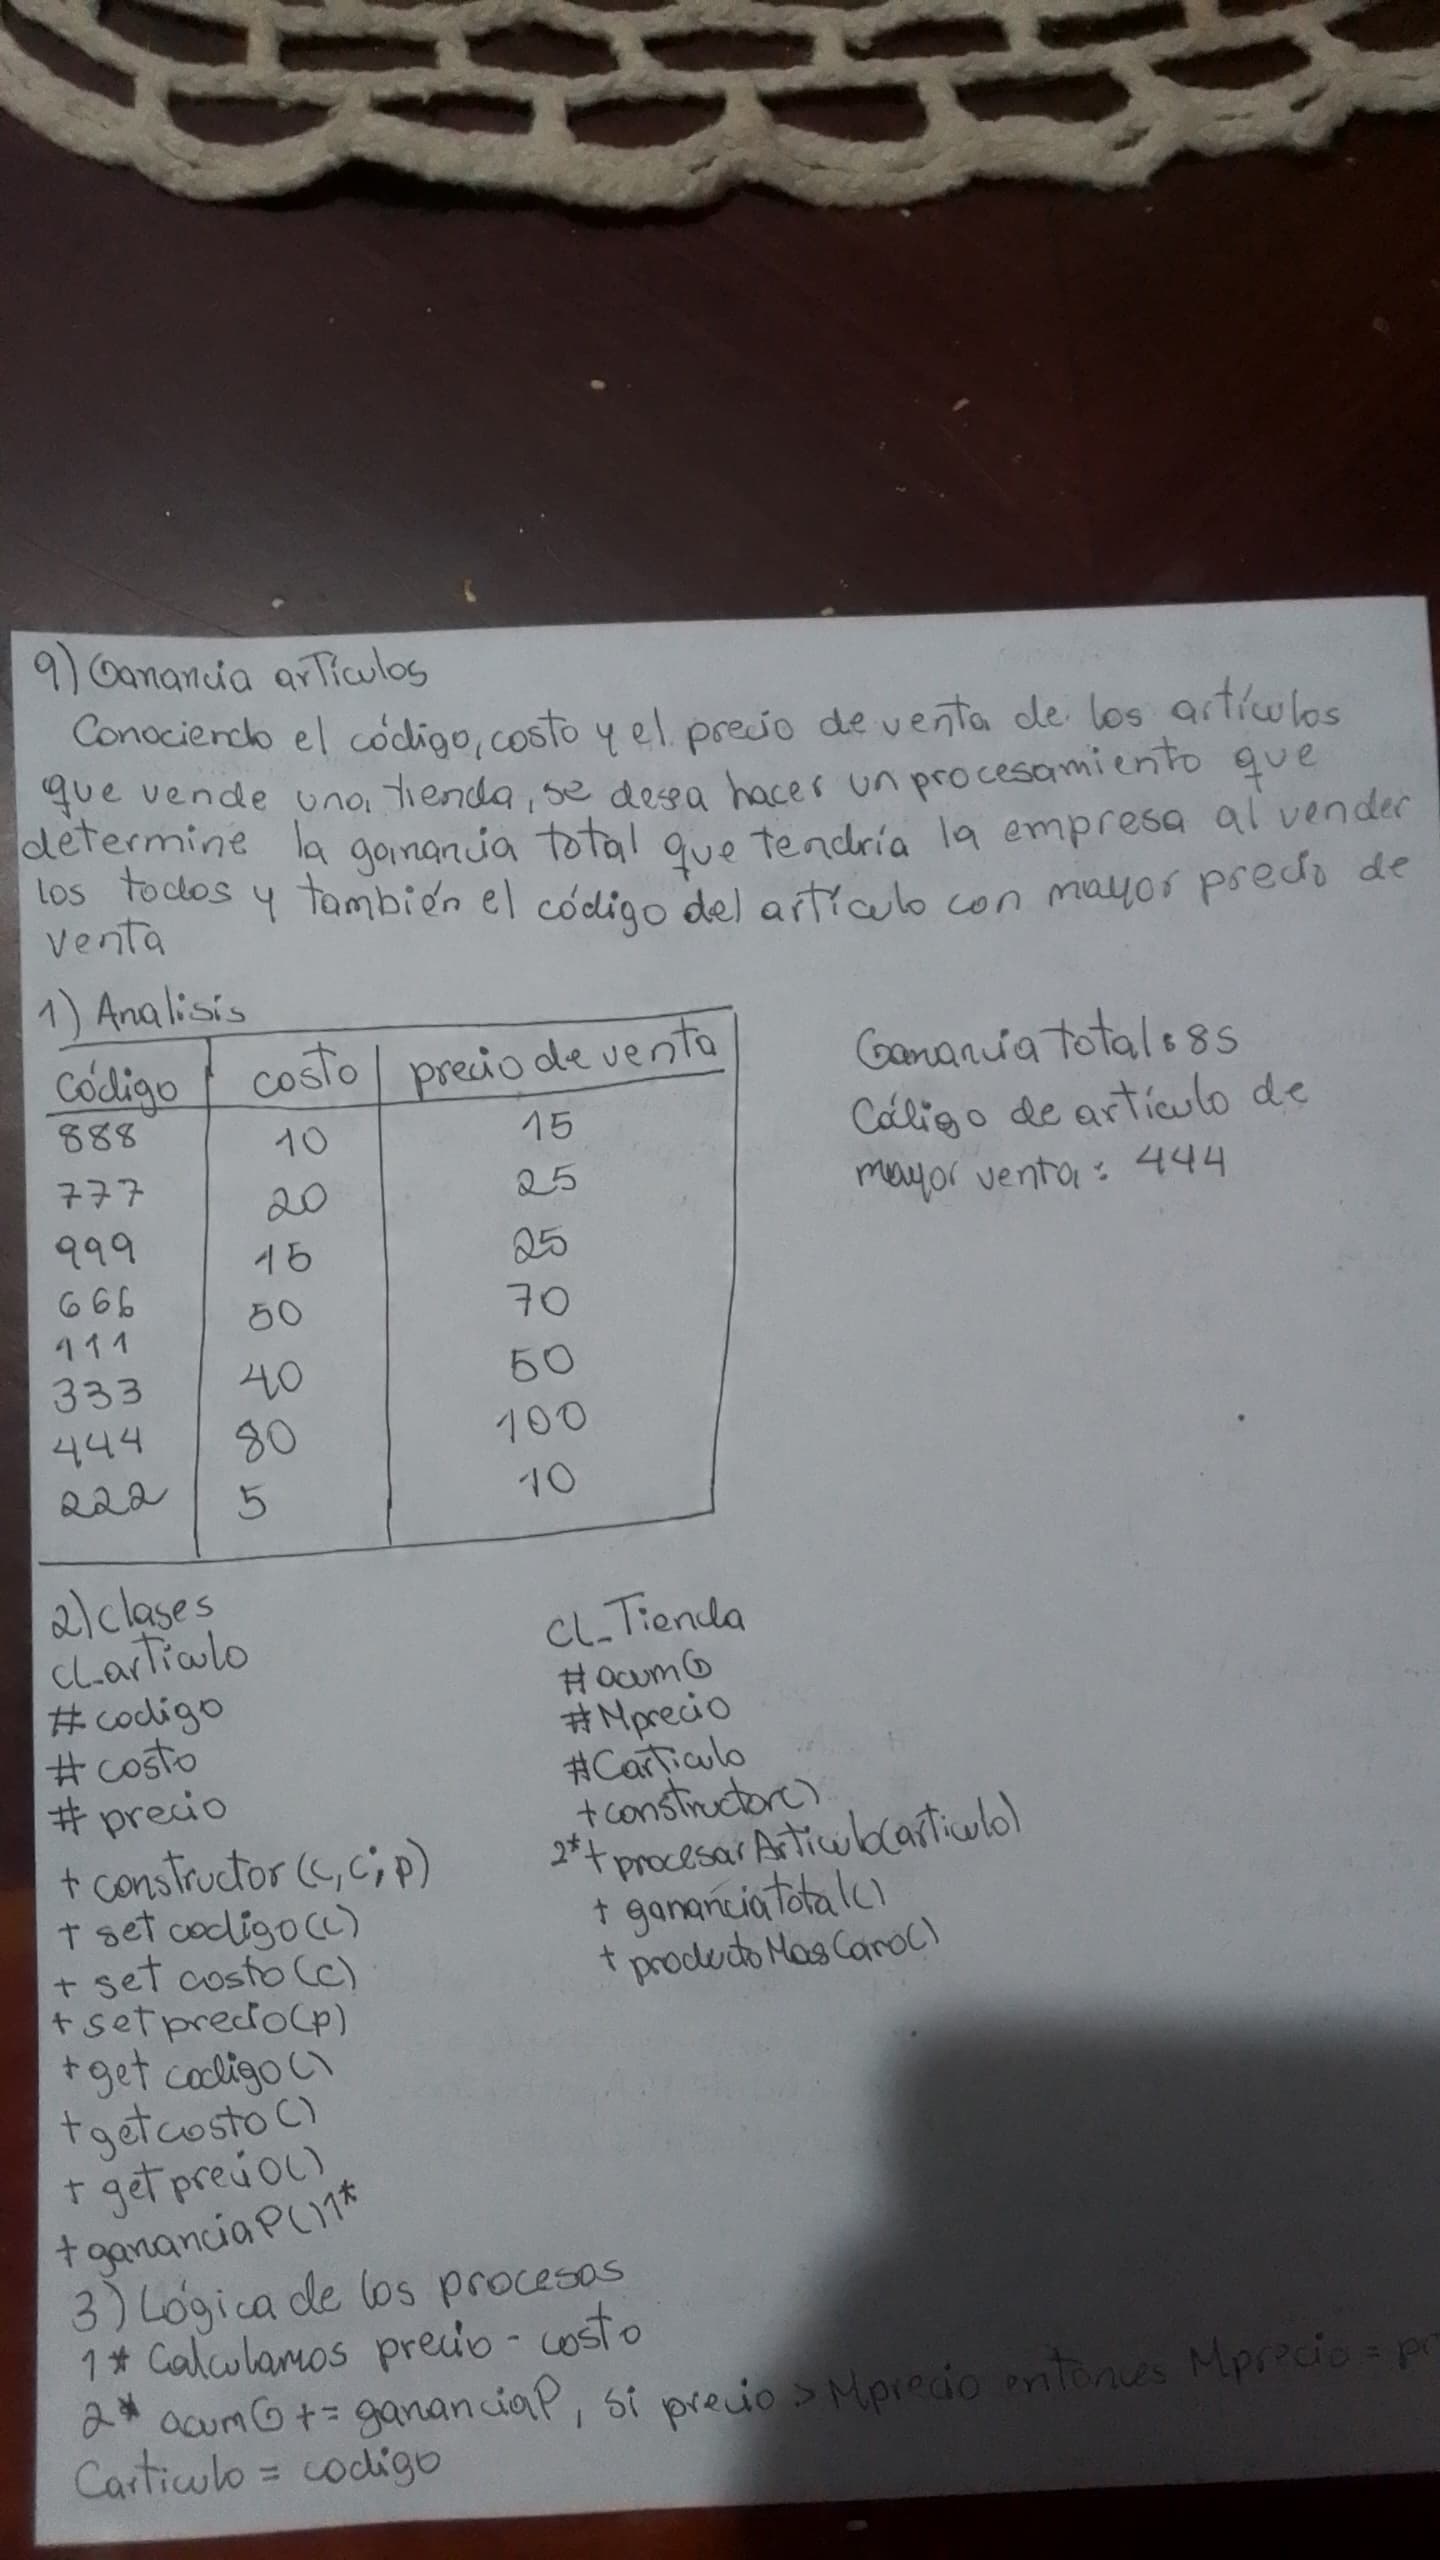 9) Ganancia artículos
Conociendo el código, costo y el precio de venta de los artículos
que vende una tienda, se desea hacer un procesamiento que
determine la ganancia total que tendría la empresa al vender
los todos y también el código del artículo con mayor precio de
venta
1) Analisis
Código costo precio de venta
888 10 15
777 20 25
999 15 25
666 50 70
111
333 40 50
444 80 100
222 5 10
Ganancia total: 85
Código de artículo de
mayor venta: 444
2) Clases
CL_articulo
# codigo
# costo
# precio
+ constructor (c, c; p)
+ set codigo (c)
+ set costo (c)
+ set precio (p)
+ get codigo ()
+ get costo ()
+ get precio ()
+ gananciaP () 1*
CL_Tienda
# acumG
# Mprecio
# Carticulo
+ constructor ()
2* + procesarArticulo (articulo)
+ gananciaTotal ()
+ productoMasCaro ()
3) Lógica de los procesos
1* Calculamos precio - costo
2* acumG += gananciaP, si precio > Mprecio entonces Mprecio = pr
Carticulo = codigo